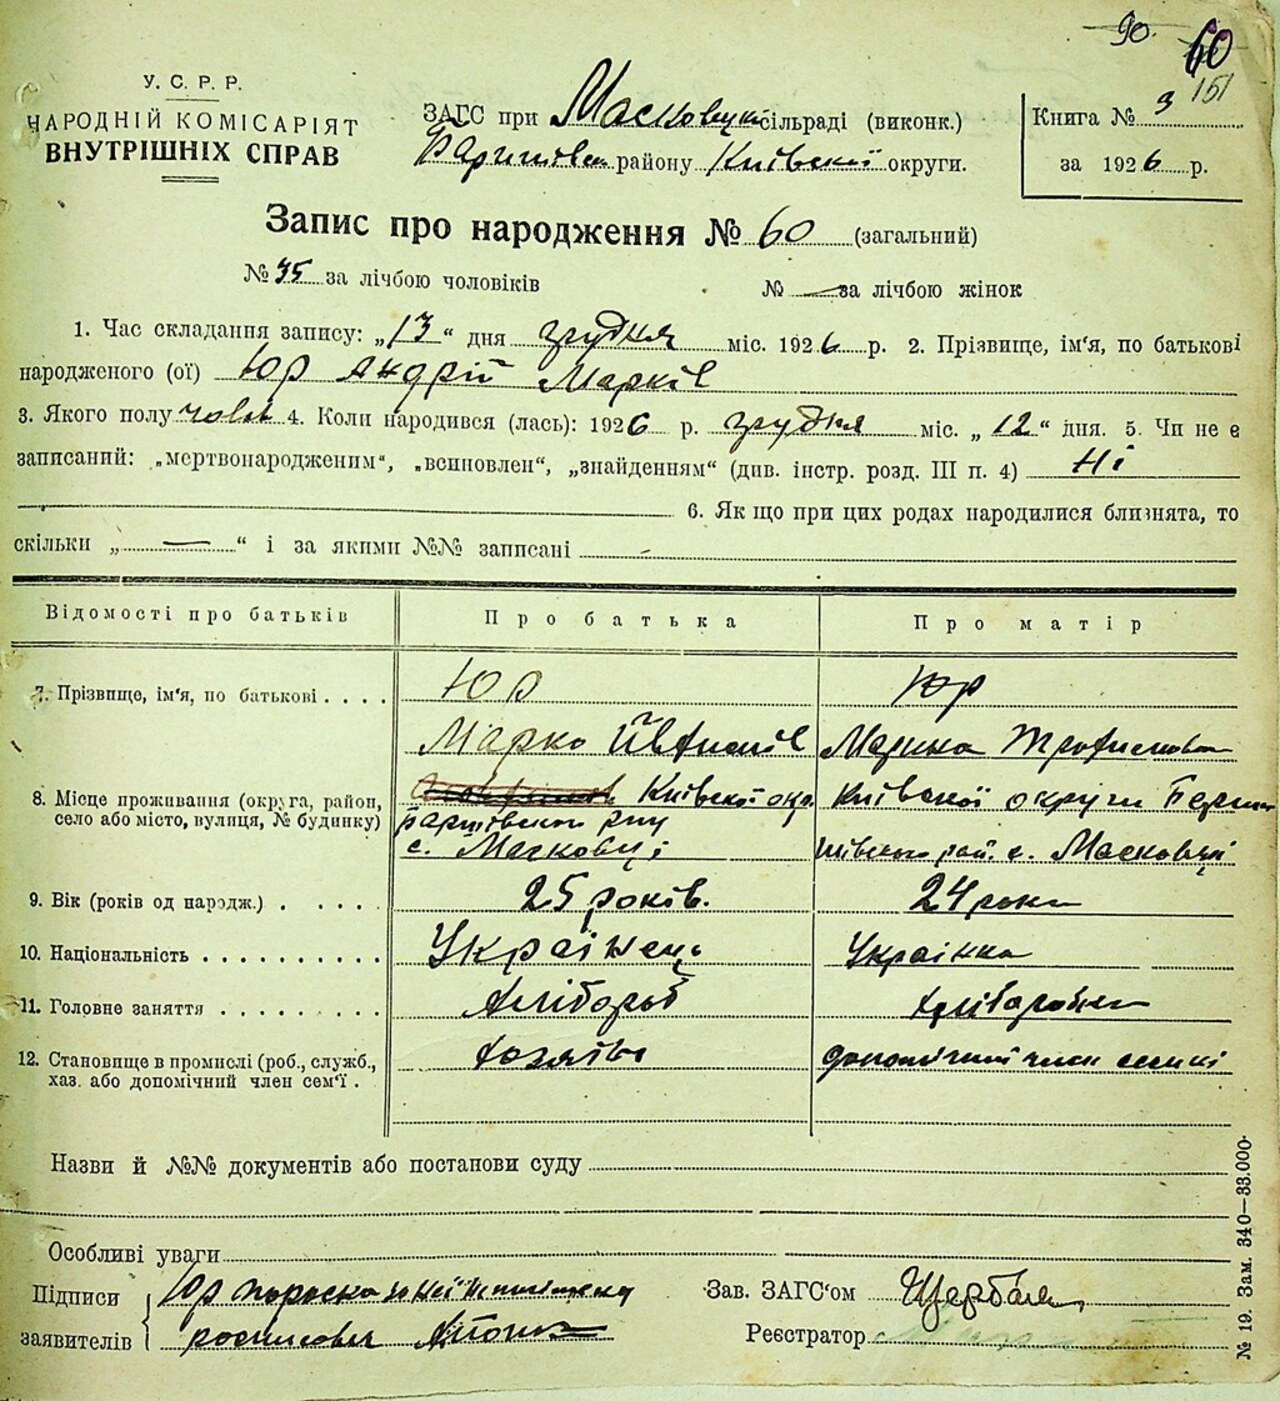 90. 60
151
У. С. Р. Р.
НАРОДНІЙ КОМІСАРІЯТ
ВНУТРІШНІХ СПРАВ
ЗАГС при Масковецкі сільраді (виконк.)
району Київської округи.
Книга № 3
за 1926 р.
Запис про народження № 60 (загальний)
№ 35 за лічбою чоловіків № — за лічбою жінок
1. Час складання запису: „13“ дня грудня міс. 1926 р. 2. Прізвище, ім'я, по батькові
народженого (ої) Юр Андрій Марків
3. Якого полу чолов 4. Коли народився (лась): 1926 р. грудня міс. „12“ дня. 5. Чи не є
записаний: „мертвонародженим“, „всиновлен“, „знайденням“ (див. інстр. розд. III п. 4) Ні
6. Як що при цих родах народилися близнята, то
скільки „ — “ і за якими №№ записані -
Відомості про батьків Про батька Про матір
7. Прізвище, ім'я, по батькові . . . . Юр Юр
Марко Марина Трофимовна
8. Місце проживання (округа, район, Київської окр. Київської округи
село або місто, вулиця, № будинку)
с. Масковці рай. с. Масковці
9. Вік (років од народж.) . . . . . 25 років. 24 роки
10. Національність . . . . . . . . . . Українець Українка
11. Головне заняття . . . . . . . . . Хлібороб Хліборобка
12. Становище в промислі (роб., служб., хозяїн допомічний член семьї
хаз. або допомічний член сем'ї .
Назви й №№ документів або постанови суду
Особливі уваги
Підписи Юр
заявителів росписался
Зав. ЗАГС'ом
Реєстратор
№ 19. Зам. 340—33.000.